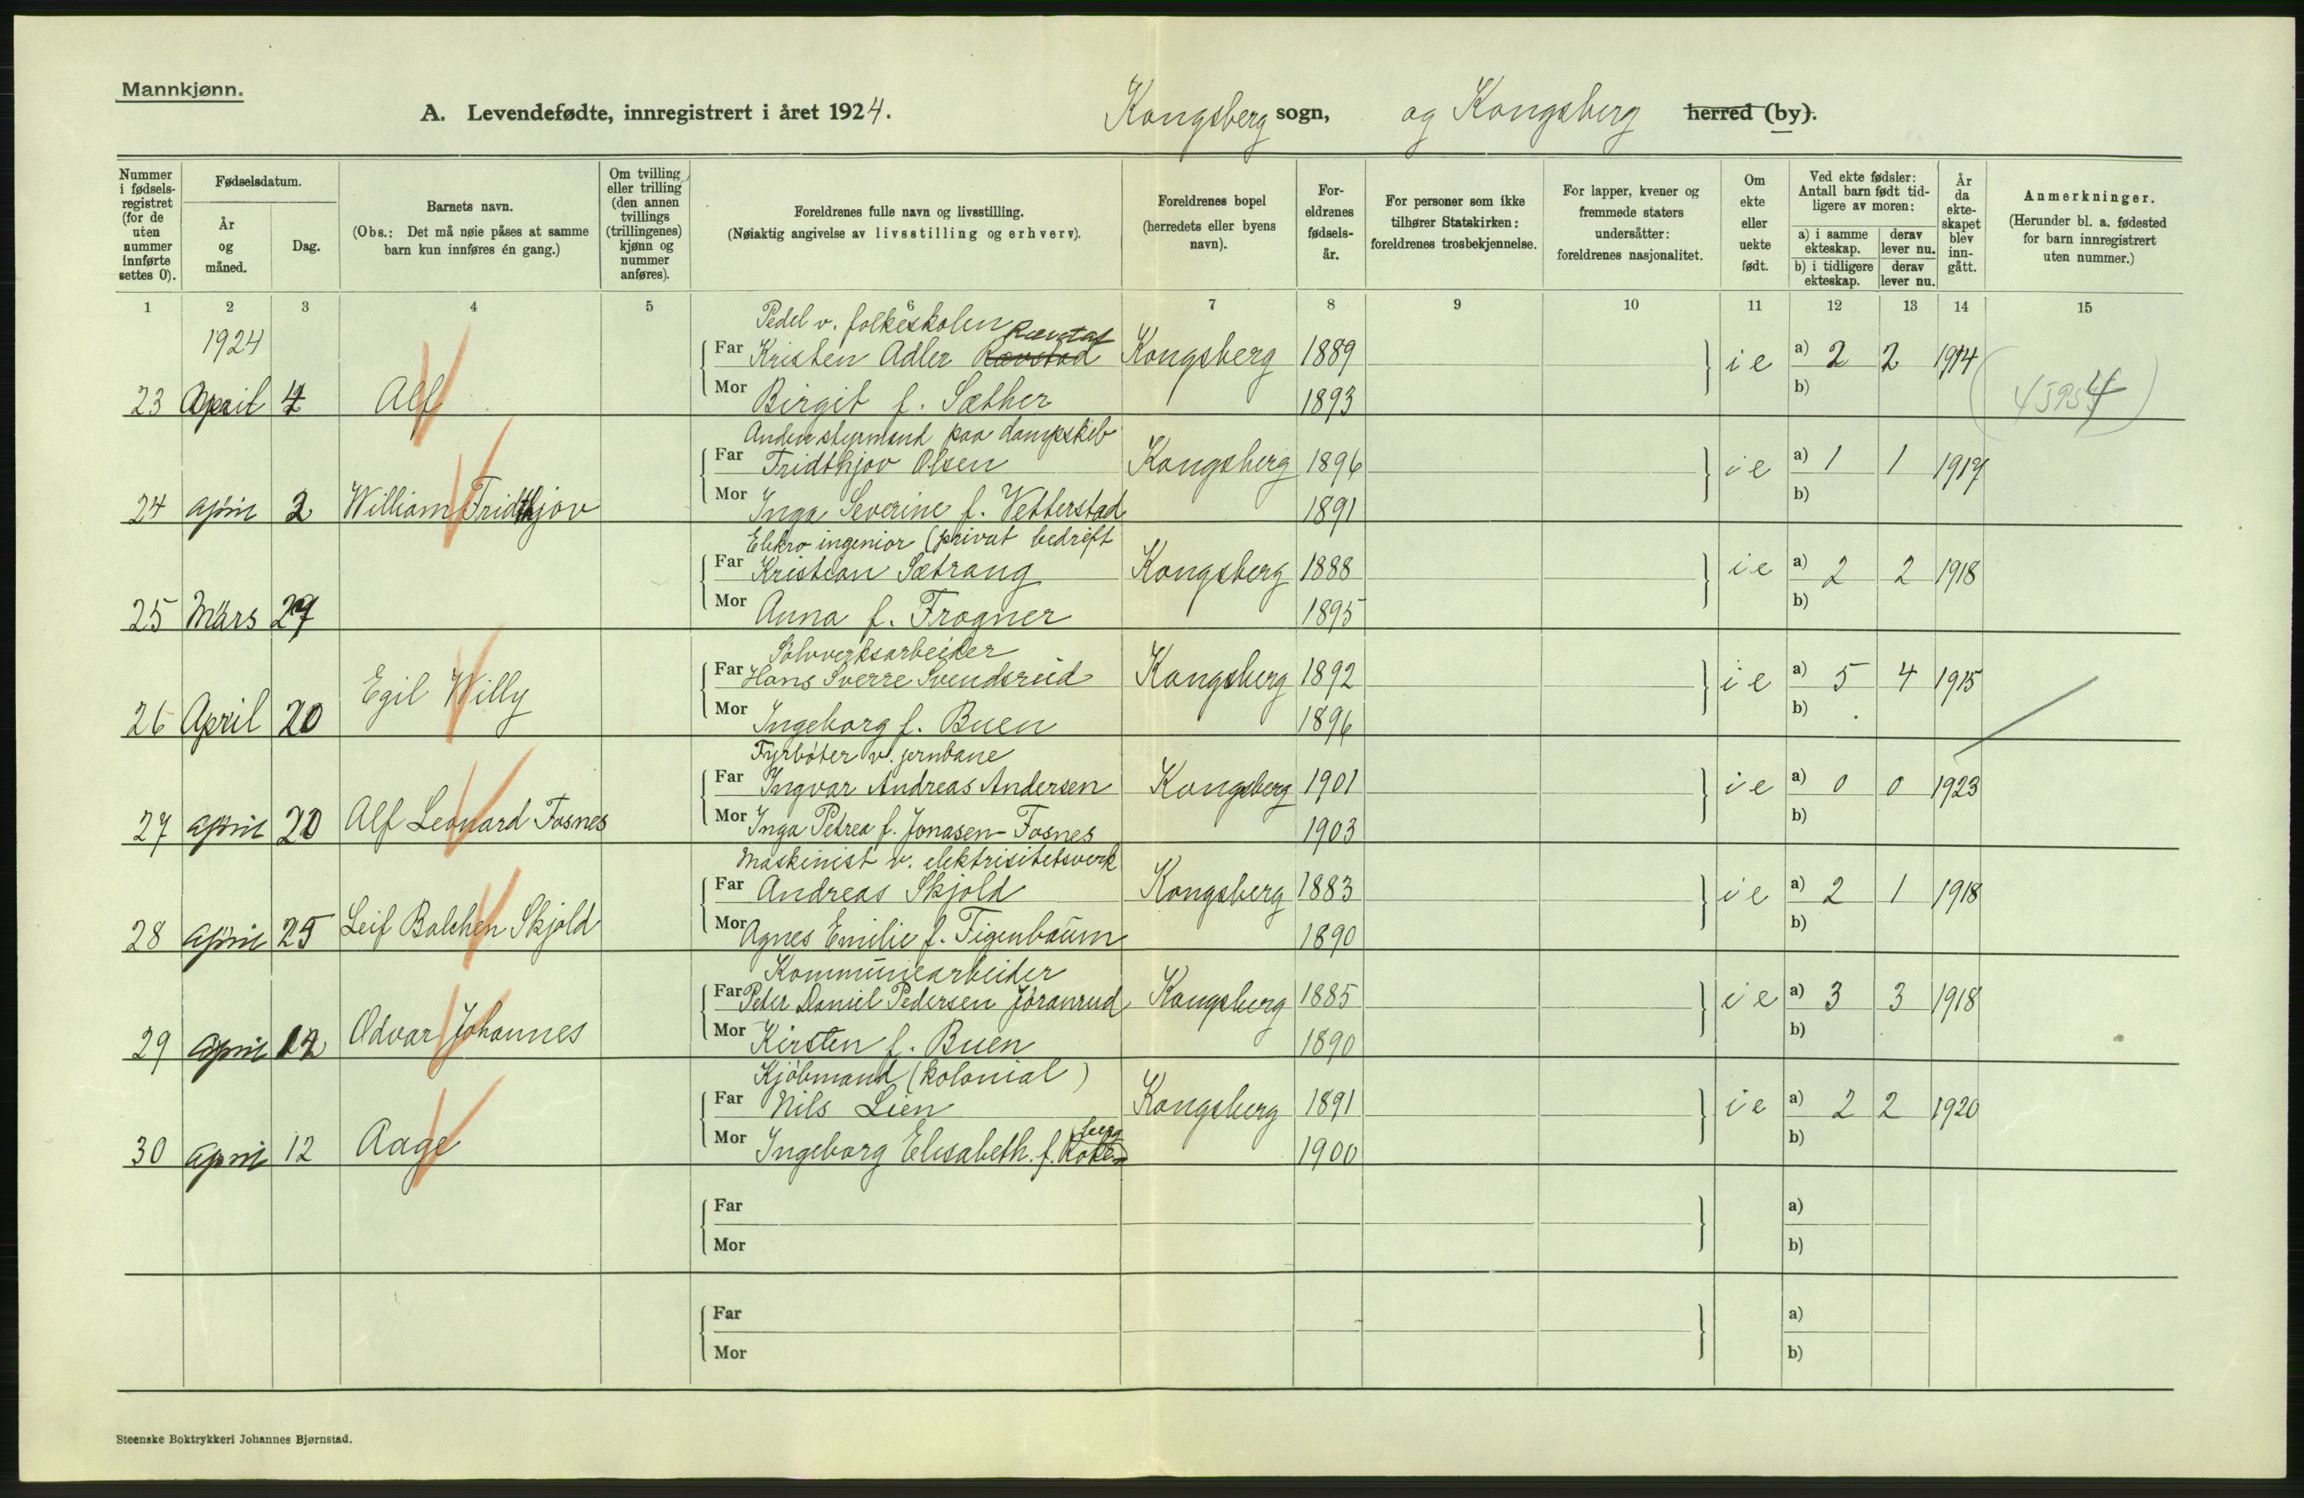 Mannkjønn.
A. Levendefødte, innregistrert i året 1924. Kongsberg sogn, og Kongsberg herred (by).
Nummer i fødsels-registret (for de uten nummer innførte settes 0).
Fødselsdatum.
År og måned.
Dag.
Barnets navn.
(Obs.: Det må nøie påses at samme barn kun innføres én gang.)
Om tvilling eller trilling (den annen tvillings (trillingenes) kjønn og nummer anføres).
Foreldrenes fulle navn og livsstilling.
(Nøiaktig angivelse av livsstilling og erhverv).
Foreldrenes bopel (herredets eller byens navn).
For-eldrenes fødsels-år.
For personer som ikke tilhører Statskirken: foreldrenes trosbekjennelse.
For lapper, kvener og fremmede staters undersåtter: foreldrenes nasjonalitet.
Om ekte eller uekte født.
Ved ekte fødsler: Antall barn født tid-ligere av moren:
a) i samme ekteskap. derav lever nu.
b) i tidligere ekteskap. derav lever nu.
År da ekte-skapet blev inn-gått.
Anmerkninger.
(Herunder bl. a. fødested for barn innregistrert uten nummer.)
1 2 3 4 5 6 7 8 9 10 11 12 13 14 15
1924
Pedel v. folkeskolen
Far Kristen Adler Rævstad Kongsberg 1889 i e a) 2 2 1914
23 April 4 Alf Mor Birgit f. Sæther 1893 b)
Anden styrmand paa dampskib
Far Fridthjov Olsen Kongsberg 1896 i e a) 1 1 1917
24 April 2 William Fridthjov Mor Inga Severine f. Vetterstad 1891 b)
Elekro ingeniør (privat bedrift
Far Kristian Sætrang Kongsberg 1888 i e a) 2 2 1918
25 Mars 27 Mor Anna f. Frogner 1895 b)
Sølvverksarbeider
Far Hans Sverre Svendsreid Kongsberg 1892 i e a) 5 4 1915
26 April 20 Egil Willy Mor Ingeborg f. Buen 1896 b)
Fyrbøter v. jernbane
Far Ingvar Andreas Andersen Kongsberg 1901 i e a) 0 0 1923
27 April 20 Alf Leonard Fosnes Mor Inga Petrea f. Jonasen-Fosnes 1903 b)
Maskinist v. elektrisitetsverk
Far Andreas Skjold Kongsberg 1883 i e a) 2 1 1918
28 April 25 Leif Balchen Skjold Mor Agnes Emilie f. Figenbaum 1890 b)
Kommunearbeider
Far Peter Daniel Pedersen Jøranrud Kongsberg 1885 i e a) 3 3 1918
29 April 12 Odvar Johannes Mor Kirsten f. Buen 1890 b)
Kjøbmand (kolonial)
Far Nils Lien Kongsberg 1891 i e a) 2 2 1920
30 April 12 Aage Mor Ingeborg Elisabeth f. berg 1900 b)
Far a)
Mor b)
Far a)
Mor b)
Steenske Boktrykkeri Johannes Bjørnstad.